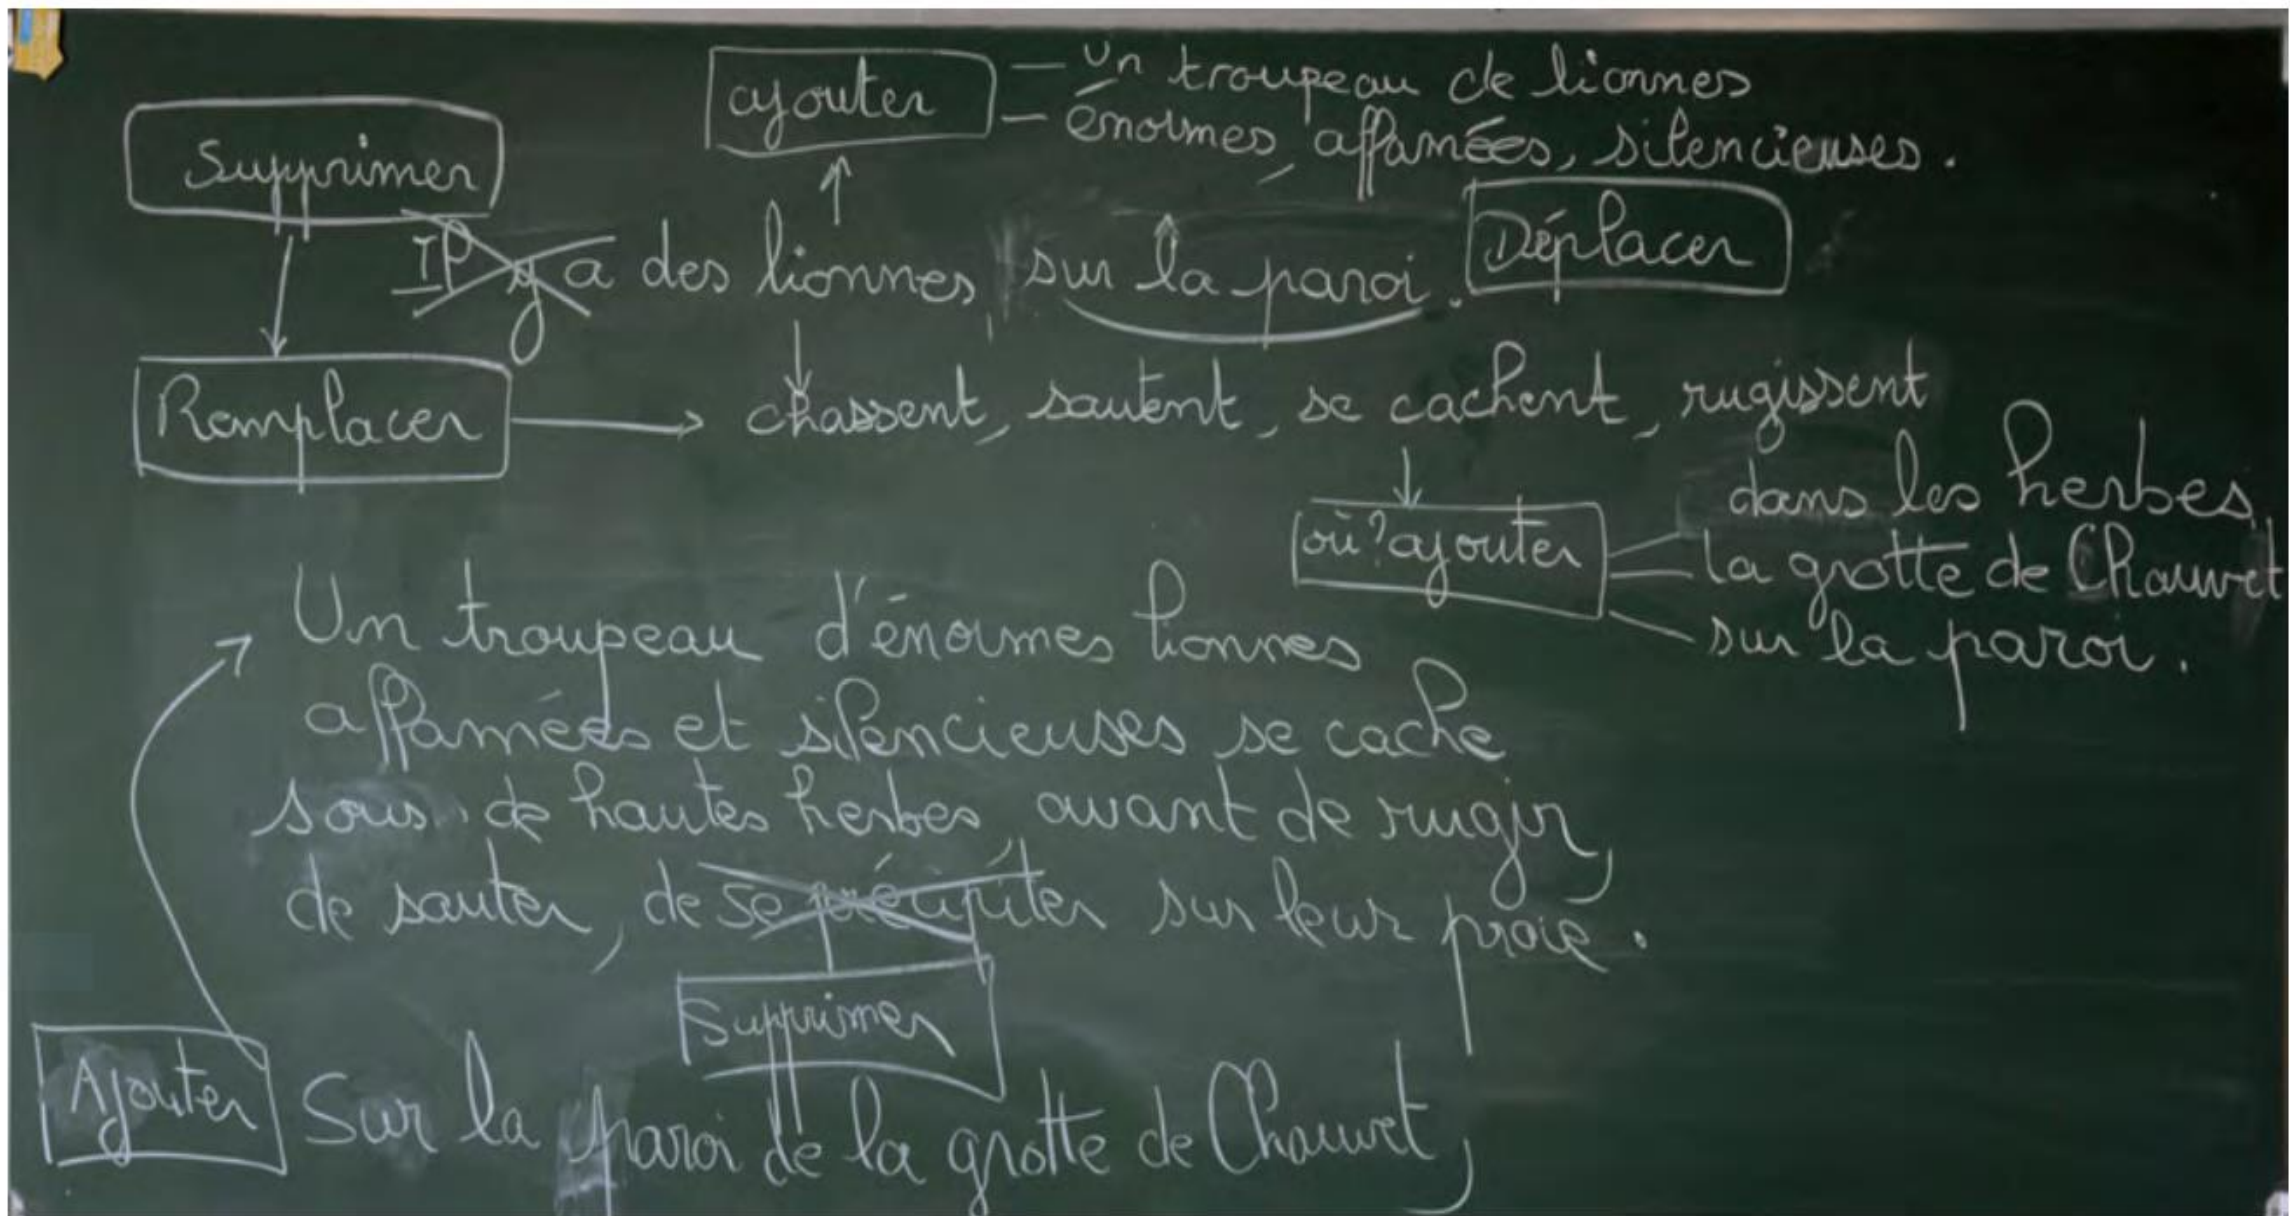 ajouter - un troupeau de lionnes
- énormes, affamées, silencieuses.
Supprimer
Il y a des lionnes sur la paroi. Déplacer
Remplacer → chassent, sautent, se cachent, rugissent
où? ajouter
dans les herbes,
la grotte de Chauvet
sur la paroi.
Un troupeau d'énormes lionnes
affamées et silencieuses se cache
sous de hautes herbes avant de rugir,
de sauter, de se précipiter sur leur proie.
Supprimer
Ajouter Sur la paroi de la grotte de Chauvet,